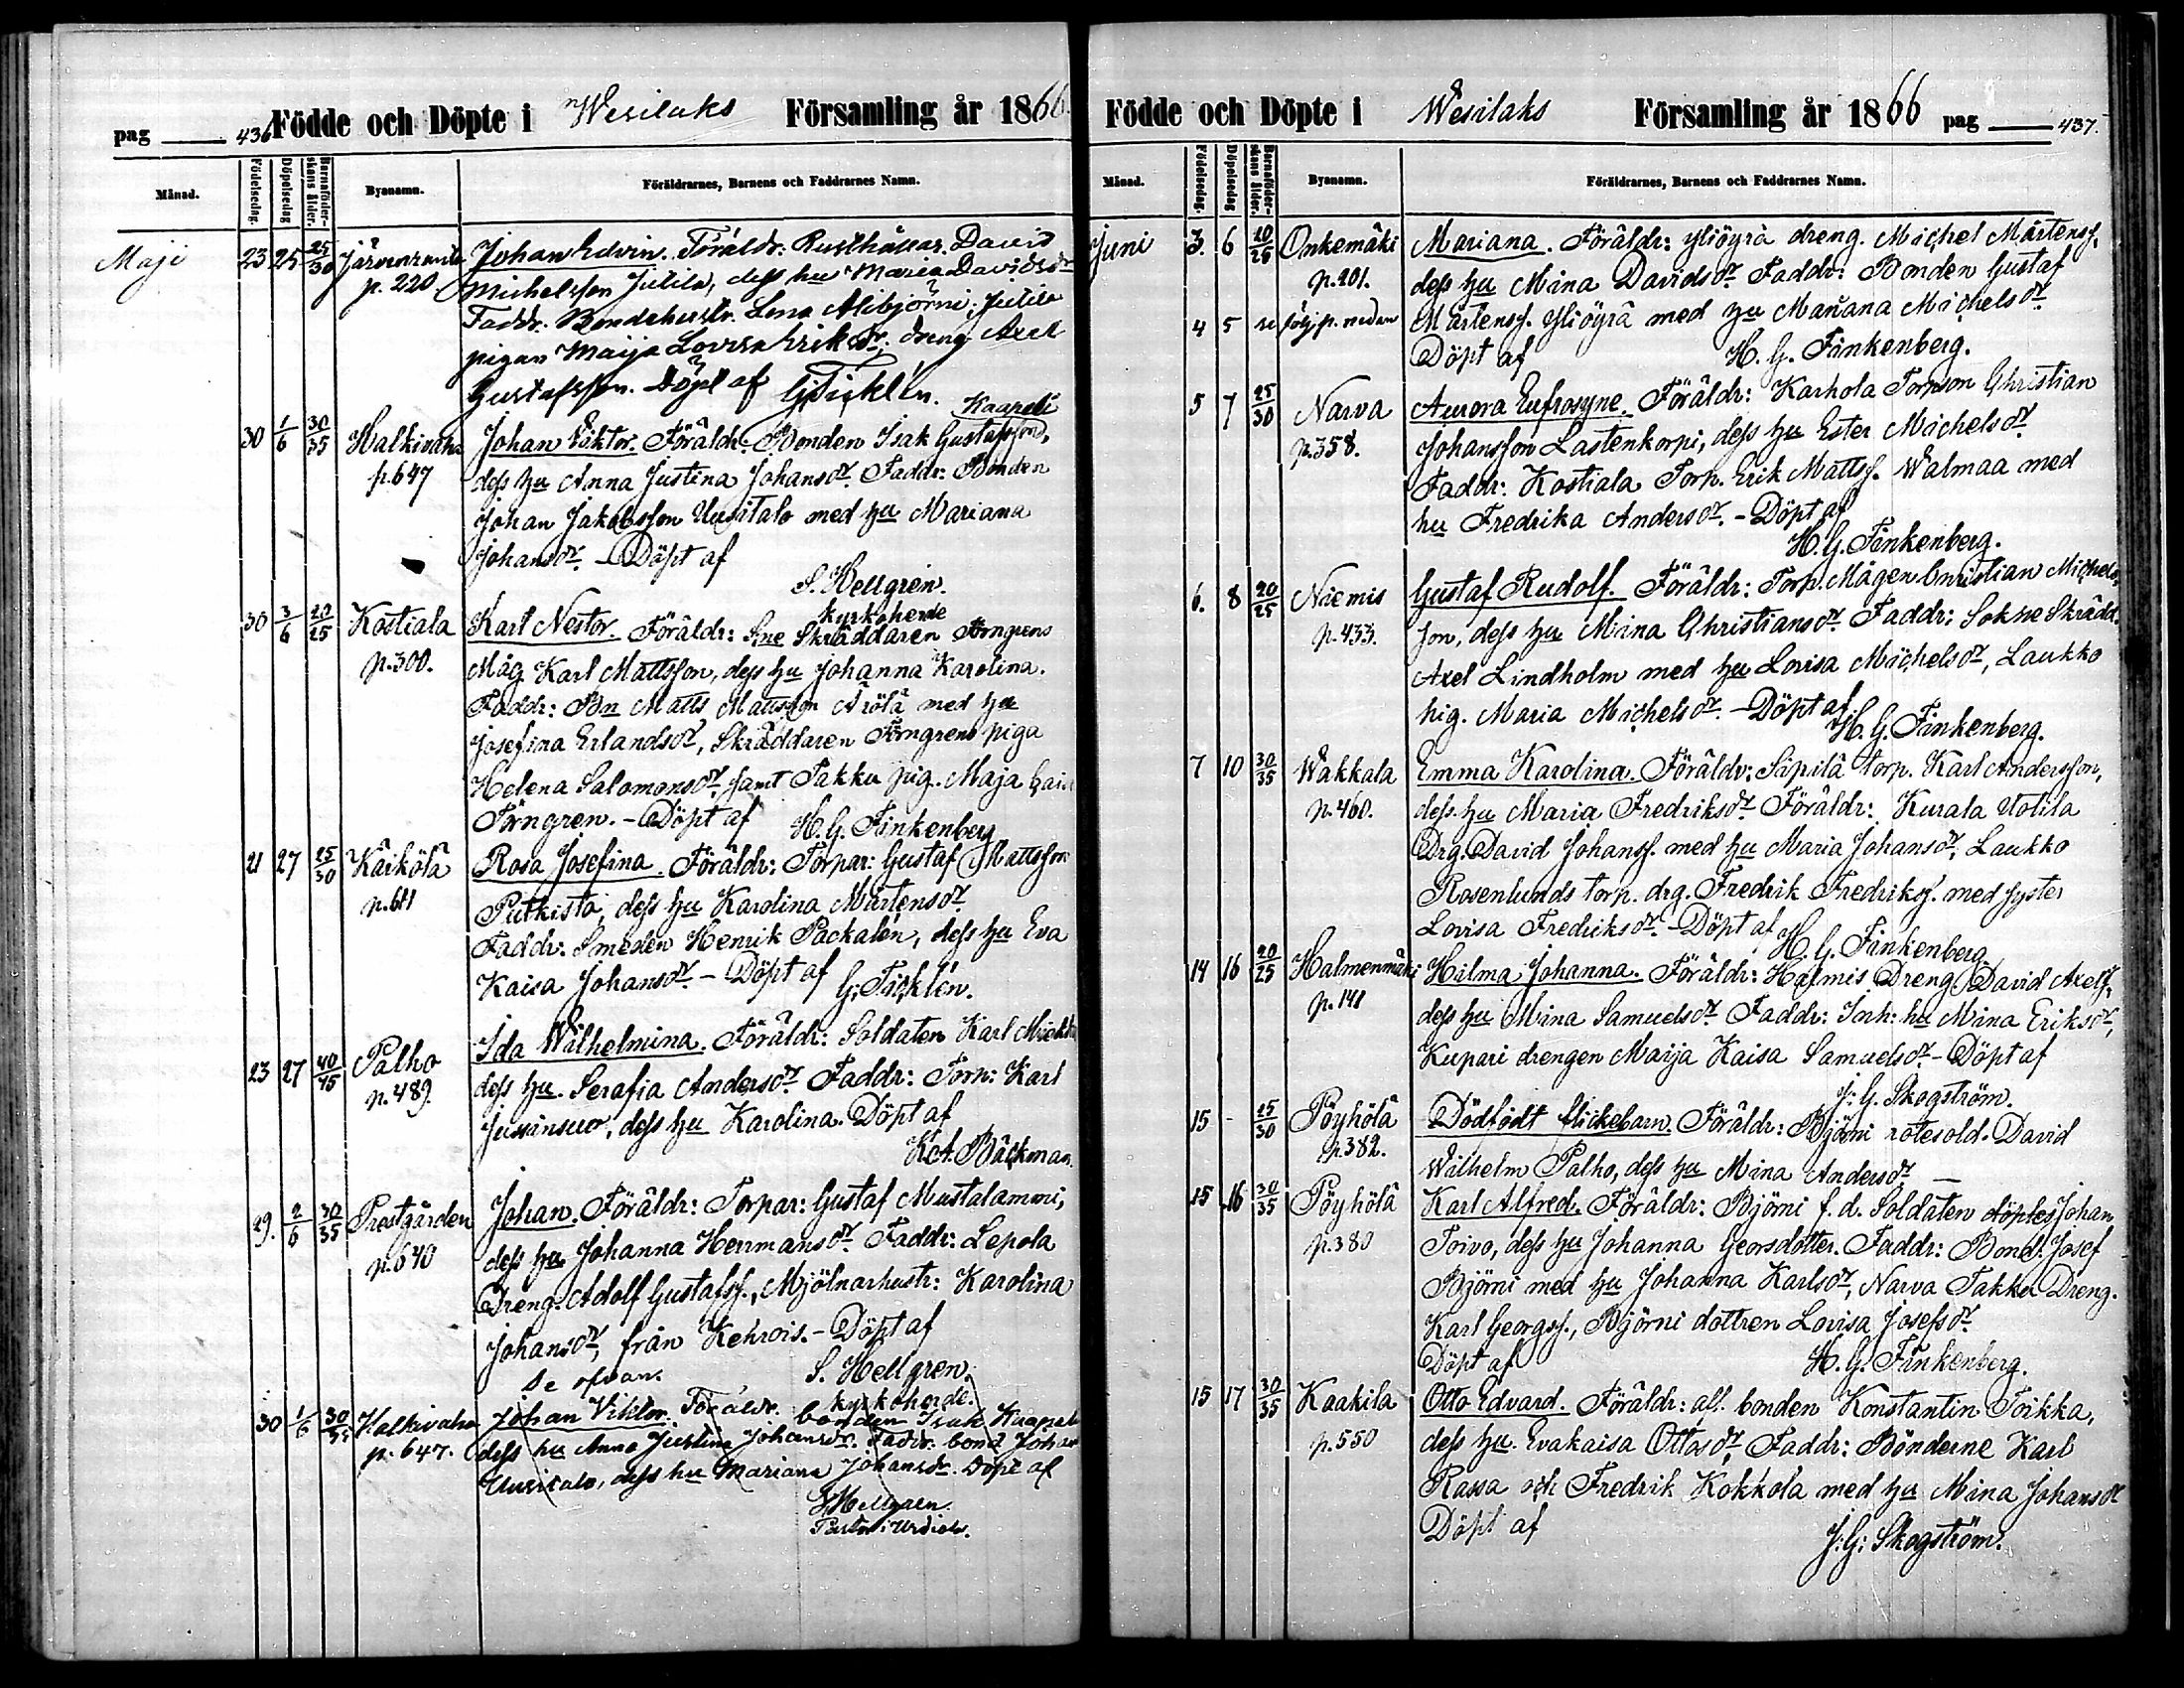 pag 436 Födde och Döpte i Wesilaks Församling år 1866.
Månad. Födelsedag. Döpelsedag Barnaföderskans ålder. Byanamn. Föräldrarnes, Barnens och Faddrarnes Namn.
Maji 23 25 25/30 Järvenranta Johan Edvin. Föräldr: Rusthållar. David
p. 220 Michelsson Jutila, dess hu Maria Davidsdr
Faddr. Bondehustr. Lena Alibjörni, Jutila
pigan Maija Lovisa Eriksdr, dreng Axel
Gustafsson. Döpt af G. Ticklén.
Kaapeli
30 1/6 30/35 Halkivaha Johan Viktor. Föräldr: Bonden Isak Gustafsson,
p. 647 dess hu Anna Justina Johansdr. Faddr: Bonden
Johan Jakobsson Uusitalo med hu Mariana
Johansdr. – Döpt af
S. Hellgren.
kyrkoherde
30 3/6 20/25 Kostiala Karl Nestor. Föräldr: Sne Skräddaren Törngrens
p. 300. Måg Karl Mattsson, dess hu Johanna Karolina.
Faddr: Bn Matts Mattsson Arölä med hu
Josefina Erlandsdr, Skräddaren Törngrens piga
Helena Salomonsdr, samt Takku pig. Maja
Törngren. – Döpt af H. G. Finkenberg
21 27 25/30 Kärkölä Rosa Josefina. Föräldr: Torpar: Gustaf Mattsson
p. 611 Putkisto, dess hu Karolina Mårtensdr.
Faddr: Smeden Henrik Packalén, dess hu Eva
Kaisa Johansdr. – Döpt af G. Ticklén.
23 27 40/45 Palho Ida Wilhelmina. Föräldr: Soldaten Karl
p. 489. dess hu. Serafia Andersdr. Faddr: Torp: Karl
Jussinsuo, dess hu Karolina. Döpt af
K. A. Bäckman.
29. 2/6 30/35 Prestgården Johan. Föräldr: Torpar: Gustaf Mustalammi,
p. 640 dess hu Johanna Hermansdr. Faddr: Lepola
Dreng. Adolf Gustafss., Mjölnarhustr: Karolina
Johansdr, från Kehrois. – Döpt af
se ofvan. S. Hellgren.
kyrkoherde.
30 1/6 30/35 Halkivaha Johan Viktor. Föräldr. bonden Isak Kaapeli
p. 647. dess hu Anna Justina Johansdr. Faddr. bond Johan
Uusitalo, dess hu Mariana Johansdr. Döpt af
S. Hellgren.
Pastor i Urdiala.
Födde och Döpte i Wesilaks Församling år 1866 pag 437.
Månad. Födelsedag. Döpelsedag Barnaföderskans ålder. Byanamn. Föräldrarnes, Barnens och Faddrarnes Namn.
Juni 3. 6 20/25 Onkemäki Mariana. Föräldr: Yliöyrä dreng. Michel Mårtenss.
p. 201. dess hu Mina Davidsdr. Faddr: Bonden Gustaf
4 5 se följ. p. nedan Mårtenss. Yliöyrä med hu Mariana Michelsdr.
Döpt af H. G. Finkenberg.
5 7 25/30 Narva Aurora Eufrosyne. Föräldr: Karhola Torpson Christian
p. 358. Johansson Lastenkorpi, dess hu Ester Michelsdr.
Faddr: Kostiala Torp. Erik Mattss. Walmaa med
hu Fredrika Andersdr. – Döpt af
H. G. Finkenberg.
6. 8 20/25 Niemis Gustaf Rudolf. Föräldr: Torp. Mågen Christian Michels-
p. 433. son, dess hu Mina Christiansdr. Faddr: Sokne Skrädd.
Axel Lindholm med hu Lovisa Michelsdr, Laukko
pig. Maria Michelsdr. – Döpt af
H. G. Finkenberg.
7 10 30/35 Wakkala Emma Karolina. Föräldr: Säpilä torp. Karl Andersson,
p. 460. dess hu Maria Fredriksdr. Föräldr: Kurala Uotila
Drg. David Johanss. med hu Maria Johansdr, Laukko
Rosenlunds torp. drg. Fredrik Fredrikss. med syster
Lovisa Fredriksdr. – Döpt af H. G. Finkenberg
14 16 20/25 Halmenmäki Hilma Johanna. Föräldr: Halmis Dreng David Axelss.
p. 141 dess hu Mina Samuelsdr. Faddr: Inh: hu Mina Eriksdr,
Kupari drengen Maija Kaisa Samuelsdr. – Döpt af
J. G. Skogström.
15 - 25/30 Pöyhölä Dödfödt flickebarn. Föräldr: Björni rotesold. David
p. 382. Wilhelm Palho, dess hu Mina Andersdr –
15 16 30/35 Pöyhölä Karl Alfred. Föräldr: Björni f. d. Soldaten döptes Johan
p. 380 Toivo, dess hu Johanna Georsdotter. Faddr: Bond. Josef
Björni med hu Johanna Karlsdr, Narva Takku Dreng.
Karl Georgss., Björni dottren Lovisa Josefsdr.
Döpt af H. G. Finkenberg.
15 17 30/35 Kaakila Otto Edvard. Föräldr: afl. bonden Konstantin Toikka,
p. 550 dess hu. Evakaisa Ottosdr. Faddr: Bönderne Karl
Rassa och Fredrik Kokkola med hu Mina Johansdr
Döpt af
J: G: Skogström.